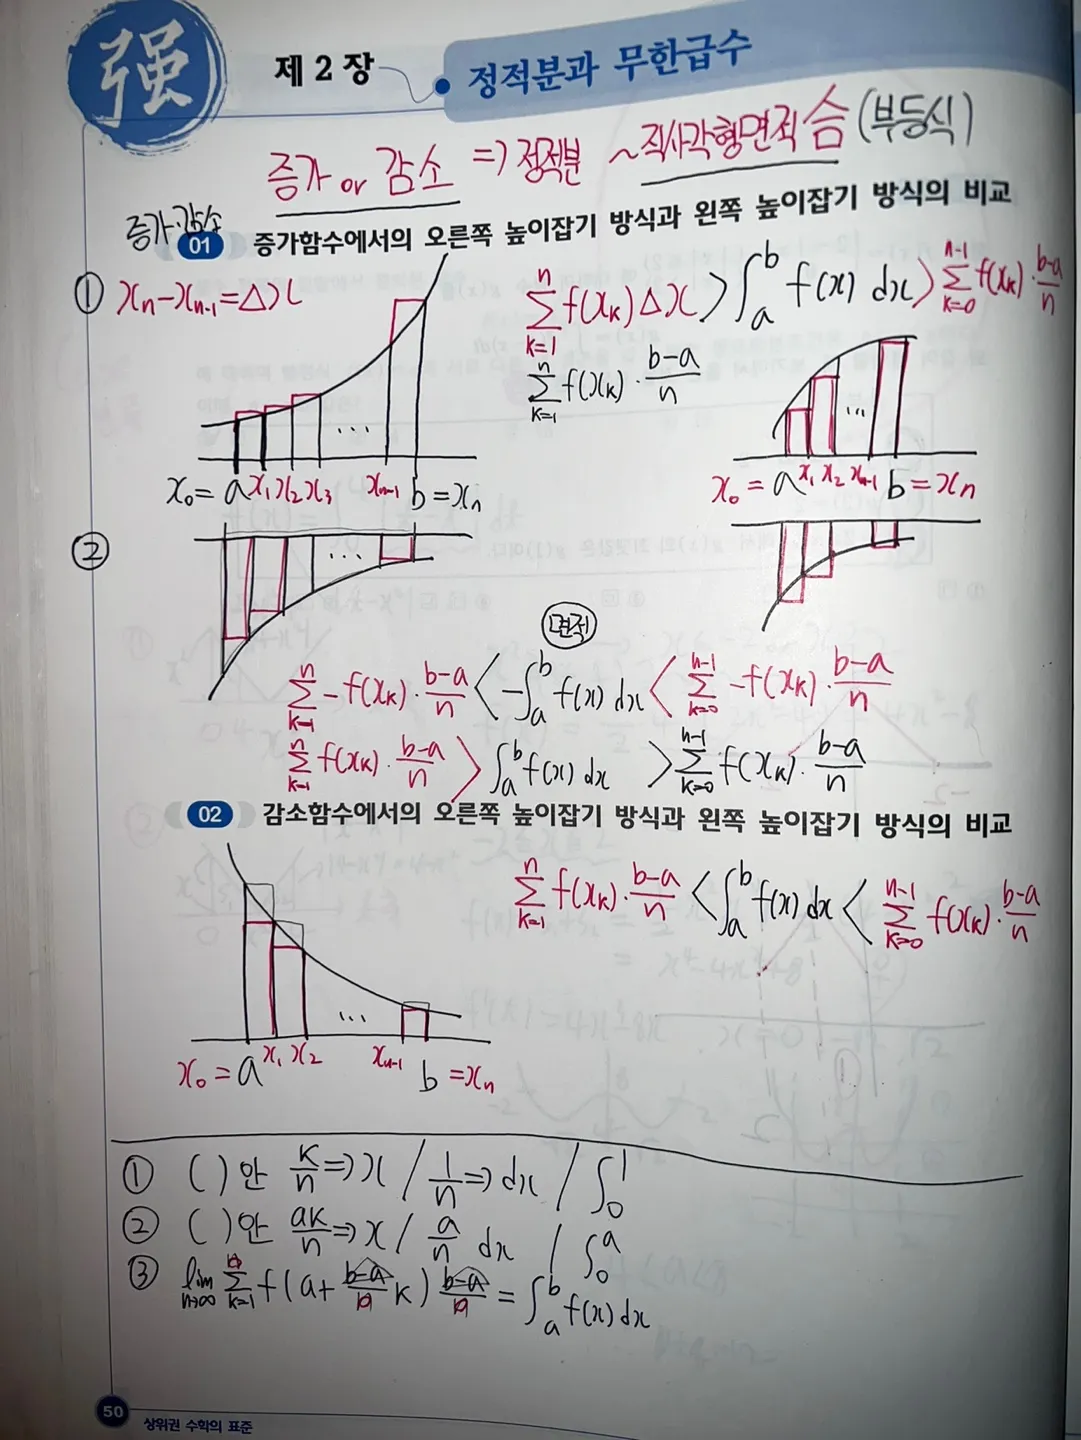 强
제 2 장 정적분과 무한급수
증가 or 감소 => 정적분 ~직사각형면적 合 (부등식)
증가·감소
01 증가함수에서의 오른쪽 높이잡기 방식과 왼쪽 높이잡기 방식의 비교
① xₙ-xₙ₋₁=△x
∑ₖ₌₁ⁿ f(xₖ)△x > ∫ₐᵇ f(x) dx > ∑ₖ₌₀ⁿ⁻¹ f(xₖ)·(b-a)/n
∑ₖ₌₁ⁿ f(xₖ)·(b-a)/n
...
...
x₀= a x₁ x₂ x₃ xₙ₋₁ b = xₙ
x₀ = a x₁ x₂ xₙ₋₁ b = xₙ
②
...
면적
∑ₖ₌₁ⁿ -f(xₖ)·(b-a)/n < -∫ₐᵇ f(x) dx < ∑ₖ₌₀ⁿ⁻¹ -f(xₖ)·(b-a)/n
∑ₖ₌₁ⁿ f(xₖ)·(b-a)/n > ∫ₐᵇ f(x) dx > ∑ₖ₌₀ⁿ⁻¹ f(xₖ)·(b-a)/n
02 감소함수에서의 오른쪽 높이잡기 방식과 왼쪽 높이잡기 방식의 비교
∑ₖ₌₁ⁿ f(xₖ)·(b-a)/n < ∫ₐᵇ f(x) dx < ∑ₖ₌₀ⁿ⁻¹ f(xₖ)·(b-a)/n
...
x₀ = a x₁ x₂ xₙ₋₁ b = xₙ
① ( ) 안 k/n => x / 1/n => dx / ∫₀¹
② ( ) 안 ak/n => x / a/n dx / ∫₀ᵃ
③ lim n→∞ ∑ₖ₌₁ⁿ f(a+(b-a)/n k) (b-a)/n = ∫ₐᵇ f(x) dx
50 상위권 수학의 표준